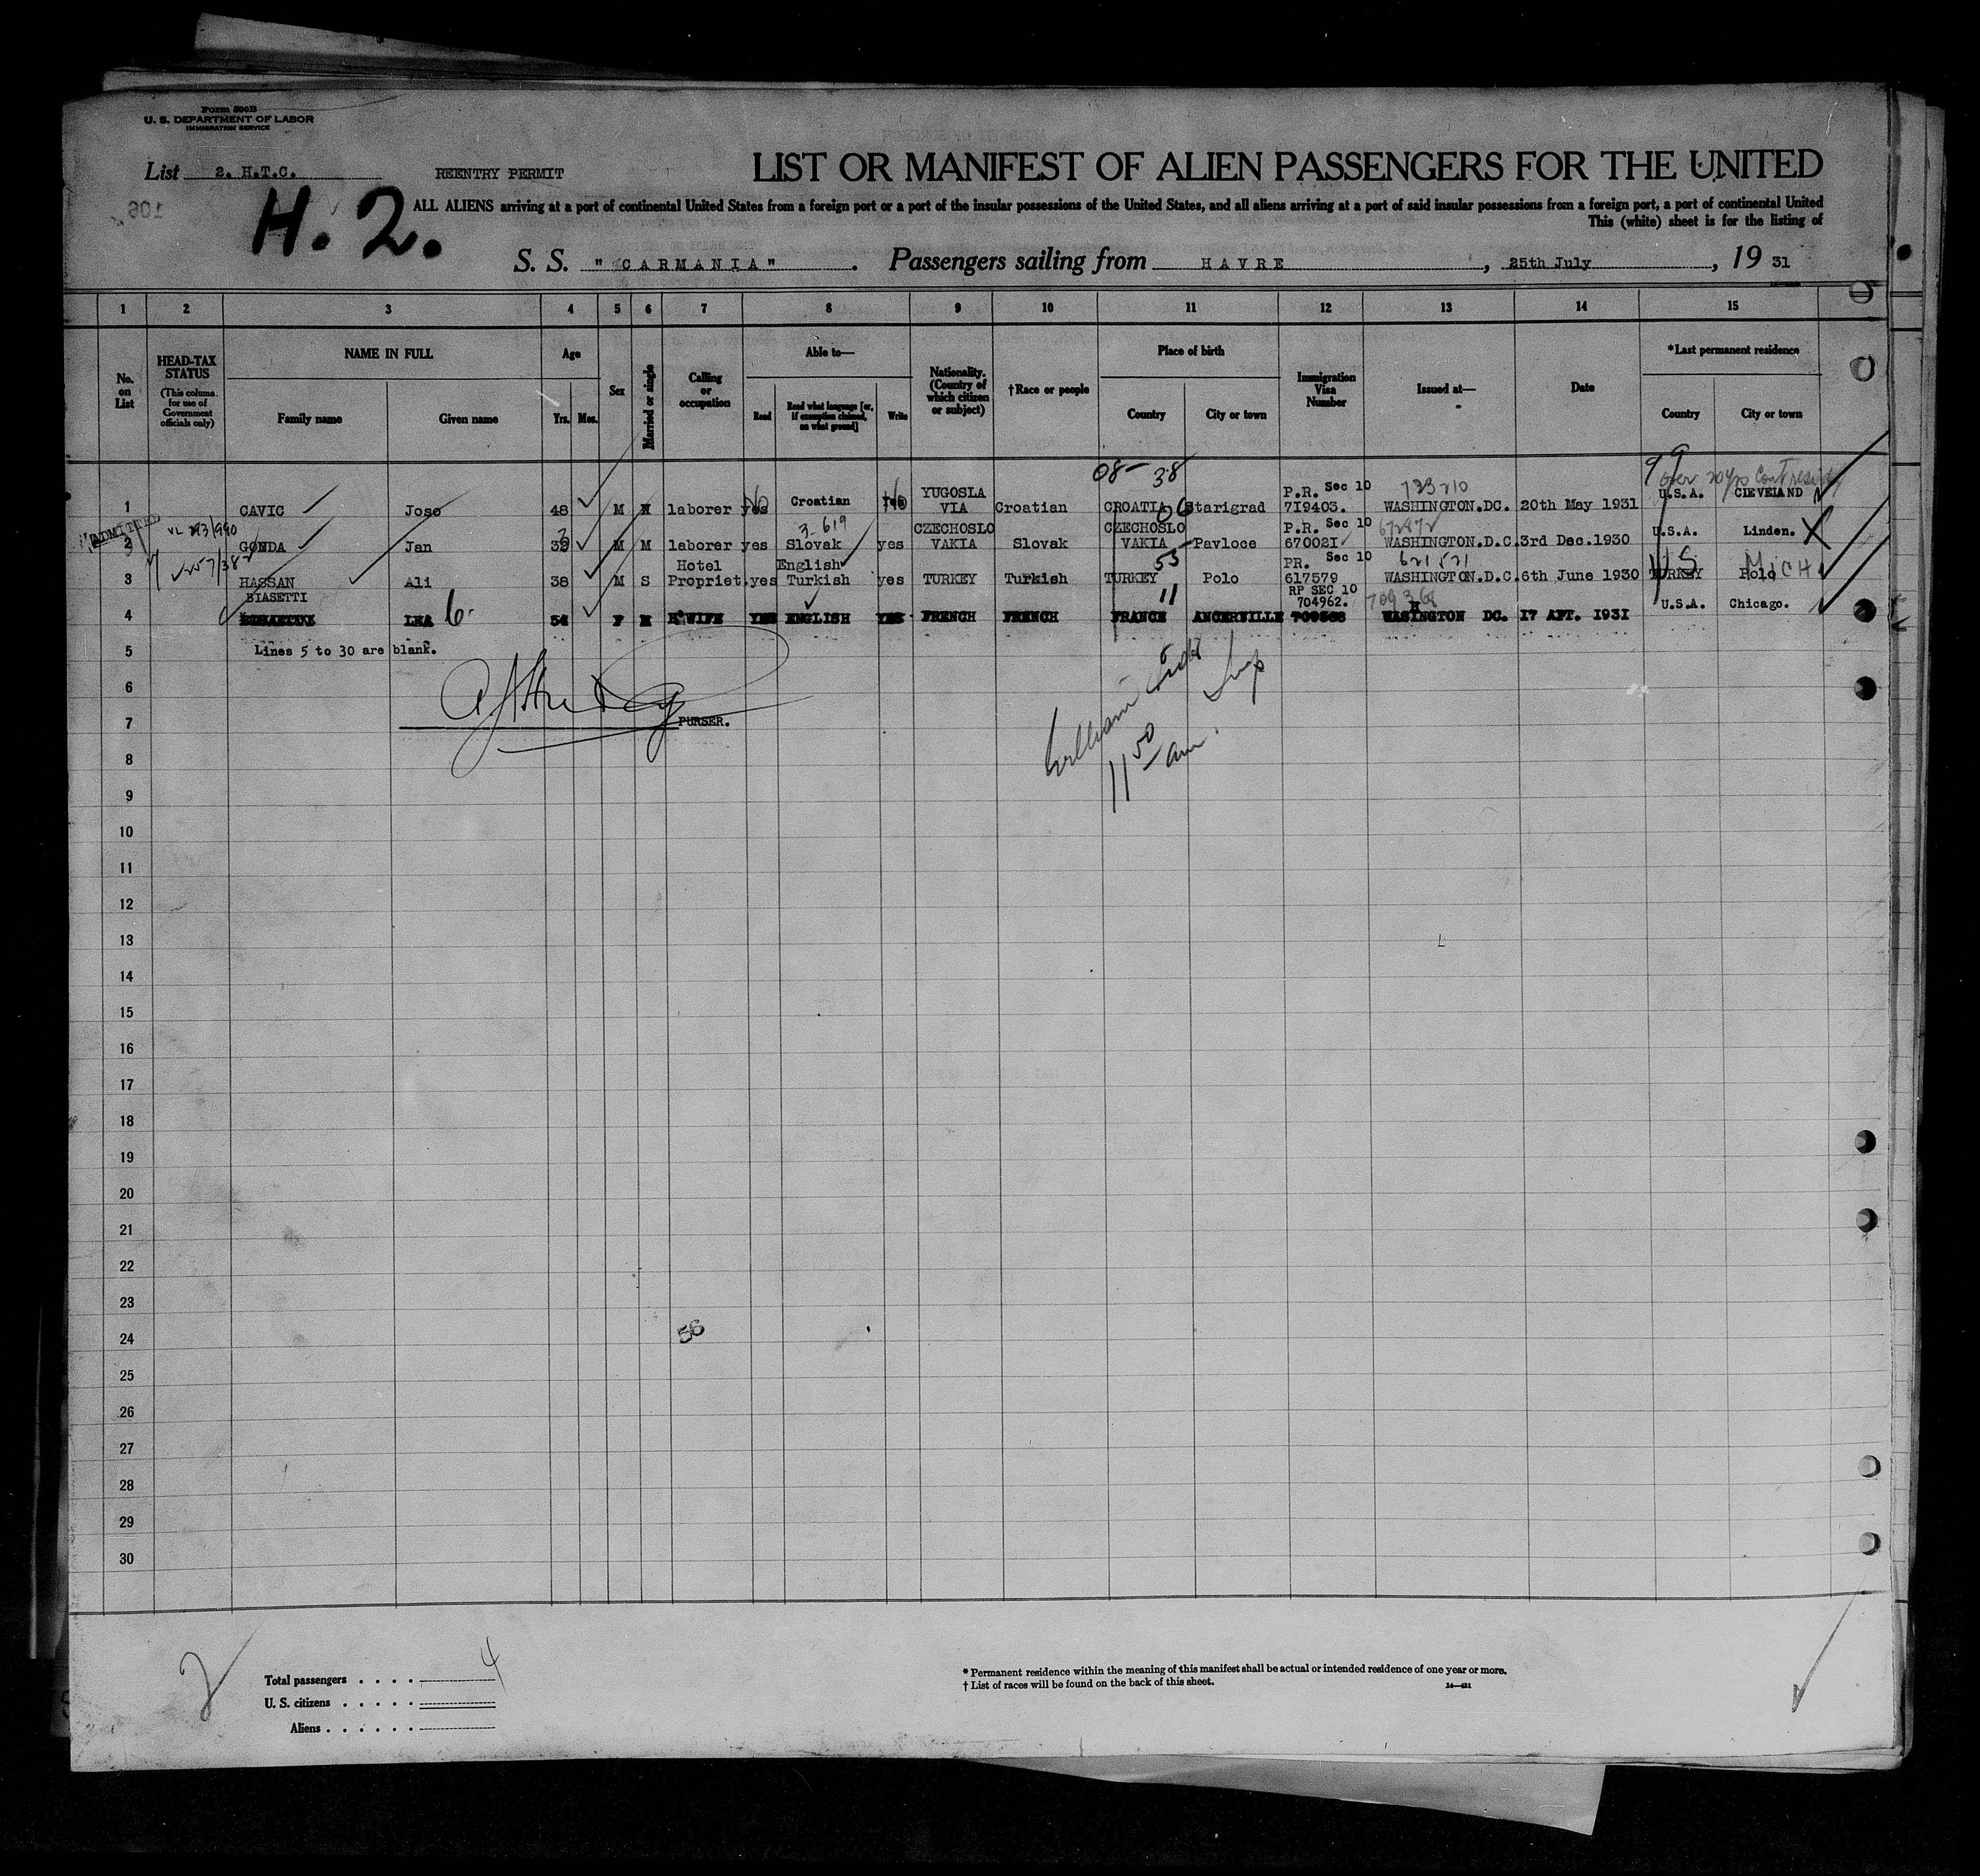 Form 500B
U. S. DEPARTMENT OF LABOR
IMMIGRATION SERVICE
List 2. H.T.C. REENTRY PERMIT
LIST OR MANIFEST OF ALIEN PASSENGERS FOR THE UNITED
106
H. 2.
ALL ALIENS arriving at a port of continental United States from a foreign port or a port of the insular possessions of the United States, and all aliens arriving at a port of said insular possessions from a foreign port, a port of continental United
This (white) sheet is for the listing of
S. S. "CARMANIA". Passengers sailing from HAVRE, 25th July, 19 31
1 2 3 4 5 6 7 8 9 10 11 12 13 14 15
No. on List
HEAD-TAX STATUS
(This column for use of Government officials only)
NAME IN FULL
Family name Given name
Age
Yrs. Mos.
Sex
Married or single
Calling or occupation
Able to—
Read Read what language [or, if exemption claimed, on what ground] Write
Nationality. (Country of which citizen or subject)
†Race or people
Place of birth
Country City or town
Immigration Visa Number
Issued at—
Date
*Last permanent residence
Country City or town
08- 38
over 20 yrs cont resid
1 CAVIC Joso 48 M laborer yes No Croatian YUGOSLA VIA Croatian CROATIA Starigrad P.R. Sec 10 719403. 733210 WASHINGTON.DC. 20th May 1931 U.S.A. CLEVELAND
ADMITTED
2 GONDA Jan M M laborer yes 3-619 Slovak yes CZECHOSLO VAKIA Slovak 06 CZECHOSLO VAKIA Pavloce P.R. Sec 10 670021 WASHINGTON.D.C. 3rd Dec.1930 U.S.A. Linden. X
3 HASSAN Ali 38 M S Hotel Propriet. yes English Turkish yes TURKEY Turkish 53 TURKEY Polo PR. Sec 10 617579 621521 WASHINGTON.D.C. 6th June 1930 TURKEY US Polo MICH
4 BIASETTI LEA 6- F M H'WIFE YES ENGLISH YES FRENCH FRENCH 11 FRANCE ANGERVILLE RP SEC 10 704962. WASHINGTON DC. 17 APT. 1931 U.S.A. Chicago.
5 Lines 5 to 30 are blank.
6
7 PURSER.
William
Insp
11 50 am.
8
9
10
11
12
13
14
15
16
17
18
19
20
21
22
23
24 56
25
26
27
28
29
30
2
Total passengers . . . . 4
U. S. citizens . . . . .
Aliens . . . . . .
* Permanent residence within the meaning of this manifest shall be actual or intended residence of one year or more.
† List of races will be found on the back of this sheet.
14—421